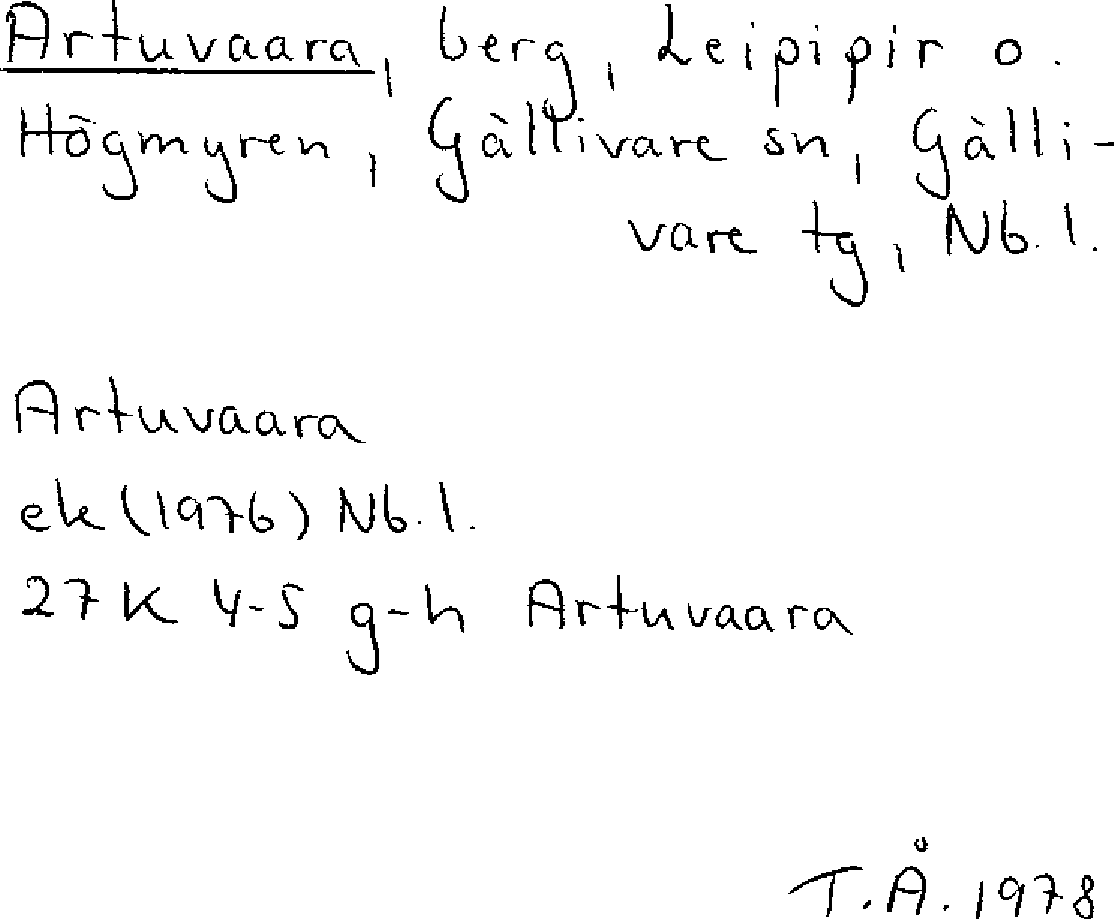 Artuvaara, berg, Leipipir o.
Högmyren, Gällivare sn, Gälli-
vare tg, Nb. l.
Artuvaara
ek (1976) Nb. l.
27K 4-5 g-h Artuvaara
T.Å. 1978